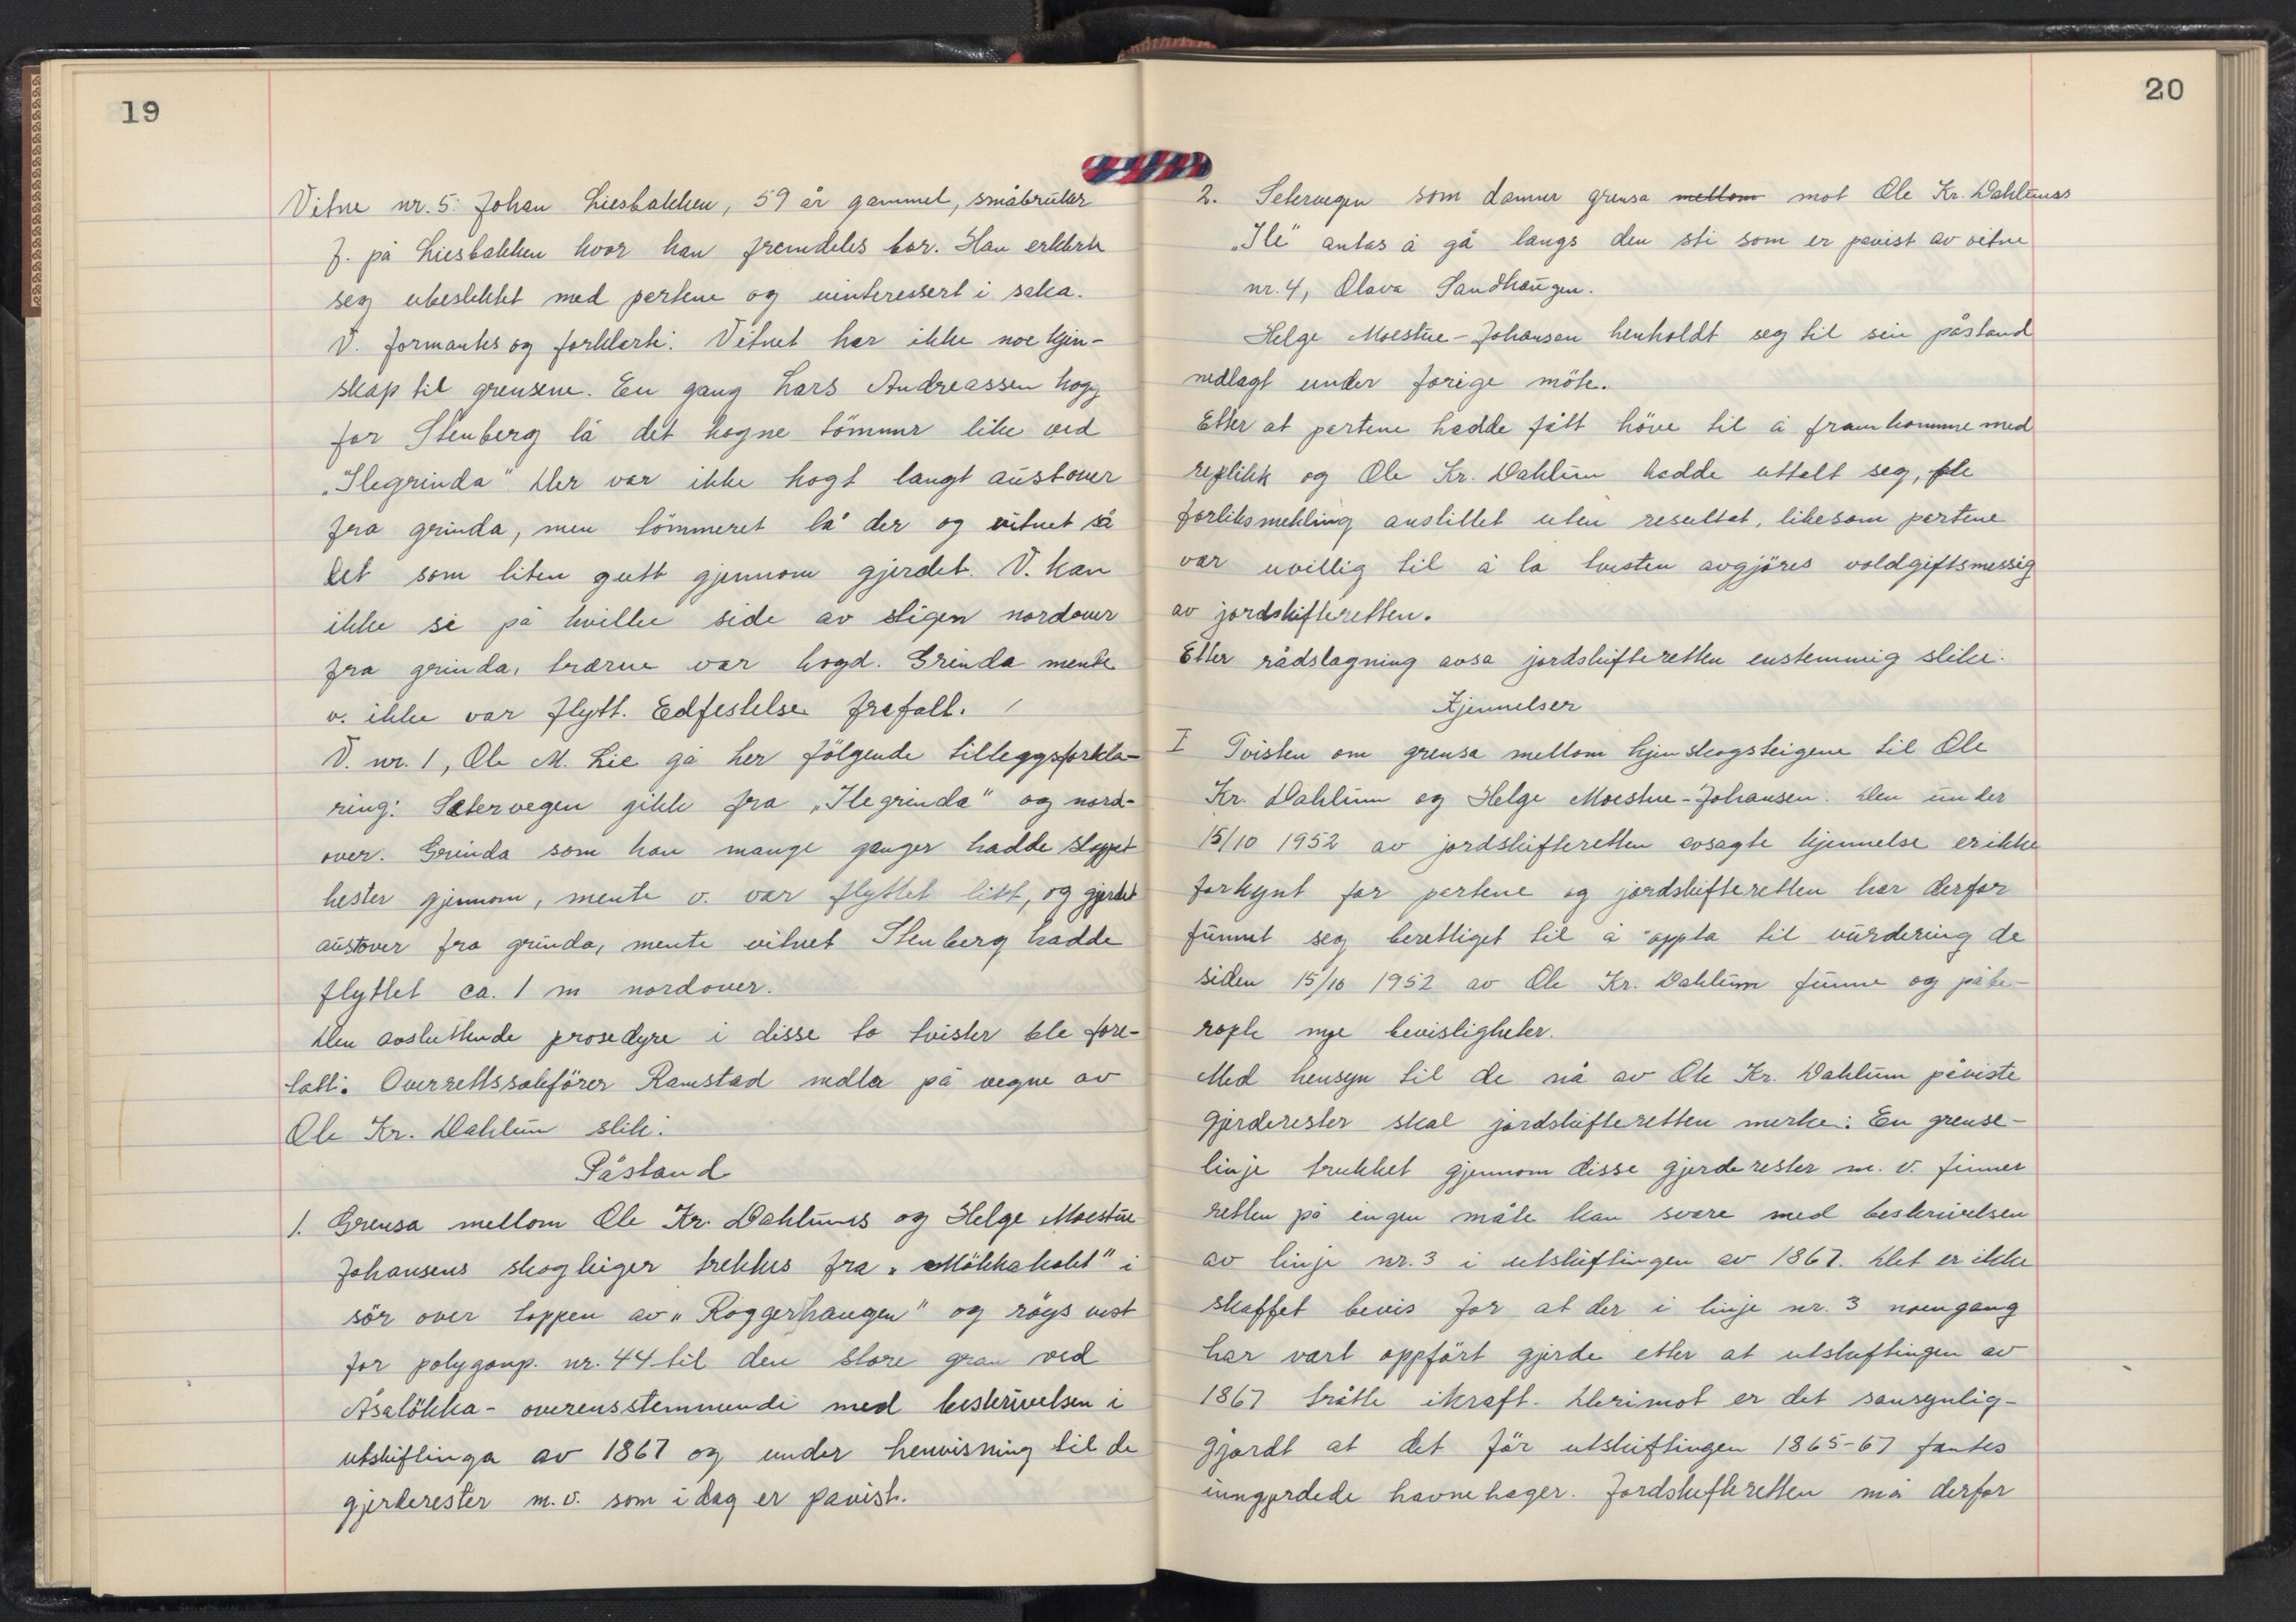 19
Vitne nr. 5: Johan Liesbakken, 59 år gammel, småbruker
f. på Liesbakken hvor han fremdeles bor. Han erklærte
seg ubeslektet med partene og uinteressert i saka.
V. formantes og forklarte: Vitnet har ikke noe kjen-
skap til grensene. En gang Lars Andreassen hogg
for Stenberg lå det hogne tömmer like ved
„Ilegrinda" Der var ikke hogt langt austover
fra grinda, men tömmeret lå der og vitnet så
det som liten gutt gjennom gjerdet. V. kan
ikke si på hvilke side av stigen nordover
fra grinda, trærne var hogd. Grinda mente
v. ikke var flytt. Edfestelse frafalt. /
V. nr. 1, Ole M. Lie ga her fölgende tilleggsforkla-
ring: Sætervegen gikk fra „Ilegrinda" og nord-
over. Grinda som han mange ganger hadde sloppet
hester gjennom, mente v. var flyttet litt, og gjerdet
austover fra grinda, mente vitnet Stenberg hadde
flyttet ca. 1 m nordover.
Den avsluttende prosedyre i disse to tvister ble fore-
tatt. Overrettssakförer Ramstad nedla på vegne av
Ole Kr. Dahlum slik:
Påstand
1. Grensa mellom Ole Kr. Dahlums og Helge Moestue
Johansens skogteiger trekkes fra „Mökkakoht" i
sör over toppen av „Roggerhaugen" og röys vest
for polygonp. nr. 44 til den store gran ved
Åsalökka - overensstemmende med beskrivelsen i
utskiftinga av 1867 og under henvisning til de
gjerderester m.v. som idag er påvist.
20
2. Setervegen som danner grensa mellom mot Ole Kr. Dahlums
„Ile" antas å gå langs den sti som er påvist av vitne
nr. 4, Olava Sandhaugen.
Helge Moestue-Johansen henholdt seg til sin påstand
nedlagt under forige möte.
Etter at partene hadde fått höve til å framkomme med
replikk og Ole Kr. Dahlum hadde uttalt seg, ble
forliksmekling anstillet uten resultat, likesom partene
var uvillig til å la tvisten avgjöres voldgiftsmessig
av jordskifteretten.
Etter rådslagning avsa jordskifteretten enstemmig slike:
Kjennelser
I Tvisten om grensa mellom hjemskogsteigene til Ole
Kr. Dahlum og Helge Moestue-Johansen. Den under
15/10 1952 av jordskifteretten avsagte kjennelse er ikke
forkynt for partene og jordskifteretten har derfor
funnet seg berettiget til å oppta til vurdering de
siden 15/10 1952 av Ole Kr. Dahlum funne og påbe-
ropte nye bevisligheter.
Med hensyn til de nå av Ole Kr. Dahlum påviste
gjerderester skal jordskifteretten merke: En grense-
linje trukket gjennom disse gjerderester m.v. finner
retten på ingen måte kan svare med beskrivelsen
av linje nr. 3 i utskiftingen av 1867. Det er ikke
skaffet bevis for at der i linje nr. 3 noengang
har vært oppfört gjerde etter at utskiftingen av
1867 trådte ikraft. Derimot er det sansynlig-
gjordt at det för utskiftingen 1865-67 fantes
inngjerdede havnehager. Jordskifteretten må derfor